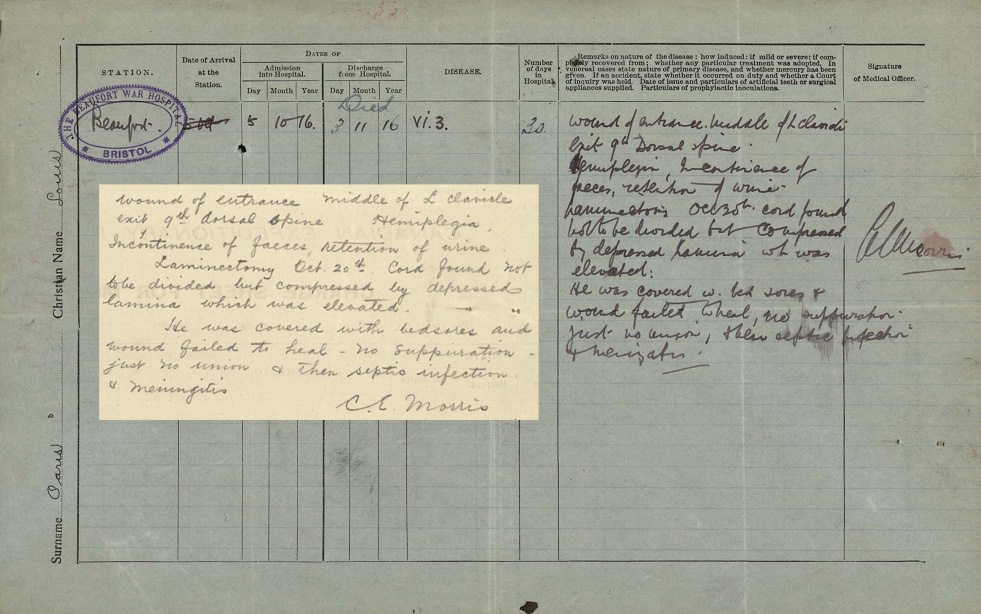 DATES OF
STATION.
Date of Arrival
at the
Station.
Admission
into Hospital.
Discharge
from Hospital.
Day Month Year
Day Month Year
DISEASE.
Number
of days
in
Hospital.
Remarks on nature of the disease : how induced : if mild or severe : if com-
pletely recovered from ; whether any particular treatment was adopted. In
venereal cases state nature of primary disease, and whether mercury has been
given. If an accident, state whether it occurred on duty and whether a Court
of Inquiry was held. Date of issue and particulars of artificial teeth or surgical
appliances supplied. Particulars of prophylactic inoculations.
Signature
of Medical Officer.
THE BEAUFORT WAR HOSPITAL
Beaufort.
BRISTOL
5 10 16.
Died
3 11 16
VI.3.
30.
Wound of entrance middle of L clavicle
Exit 9th Dorsal spine.
Hemiplegia, Incontinence of
faeces, retention of urine.
Laminectomy Oct 20th. cord found
not to be divided but compressed
by depressed lamina wh was
elevated:
He was covered w. bed sores &
wound failed to heal, no suppuration.
Just no union, then septic infection
& meningitis.
C E Morris.
wound of entrance middle of L clavicle
exit 9th dorsal spine Hemiplegia,
Incontinence of faeces, retention of urine
Laminectomy Oct. 20th. Cord found not
to be divided but compressed by depressed
lamina which was elevated.
He was covered with bedsores and
wound failed to heal - no suppuration -
just no union & then septic infection
& meningitis
C. E. Morris
Surname Paris Christian Name Louis